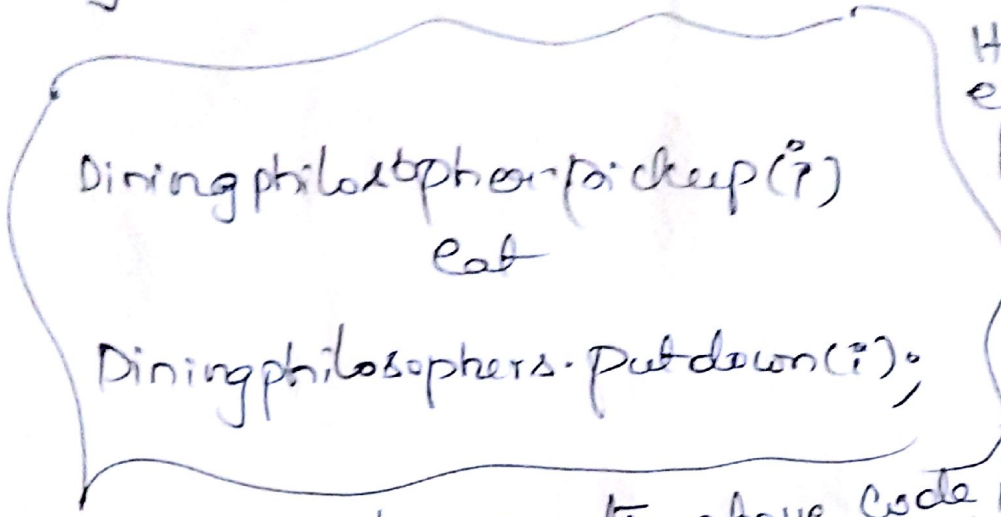 H
e
Diningphilosopher.pickup(i)
eat
Diningphilosophers.putdown(i);
above Code